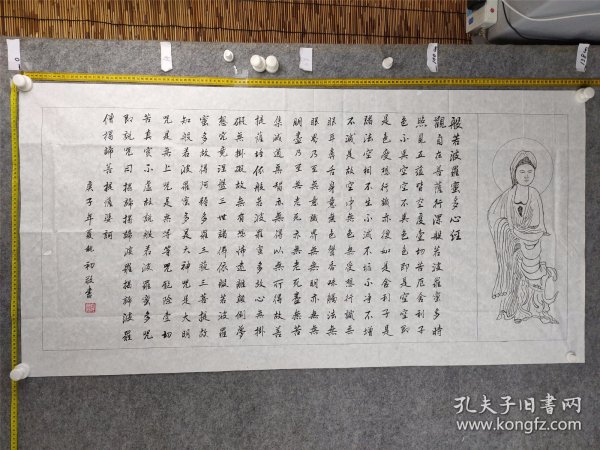 般若波羅蜜多心经
觀自在菩薩行深般若波羅蜜多時
照見五蕴皆空度一切苦厄舍利子
色不異空空不異色色即是空空即
是色受想行識亦復如是舍利子是
諸法空相不生不滅不垢不净不增
不減是故空中無色無受想行識無
眼耳鼻舌身意無色聲香味觸法無
眼界乃至無意識界無無明亦無無
明盡乃至無老死亦無老死盡無苦
集滅道無智亦無得以無所得故菩
提薩埵依般若波羅蜜多故心無掛
礙無掛礙故無有恐怖遠離顛倒夢
想究竟涅盤三世諸佛依般若波羅
蜜多故得阿耨多羅三藐三菩提故
知般若波羅蜜多是大神咒是大明
咒是無上咒是無等等咒能除一切
苦真實不虚故説般若波羅蜜多咒
即説咒曰揭諦揭諦波羅揭諦波羅
僧揭諦菩提薩婆訶
庚子年夏初敬書
孔夫子旧書网
www.kongfz.com